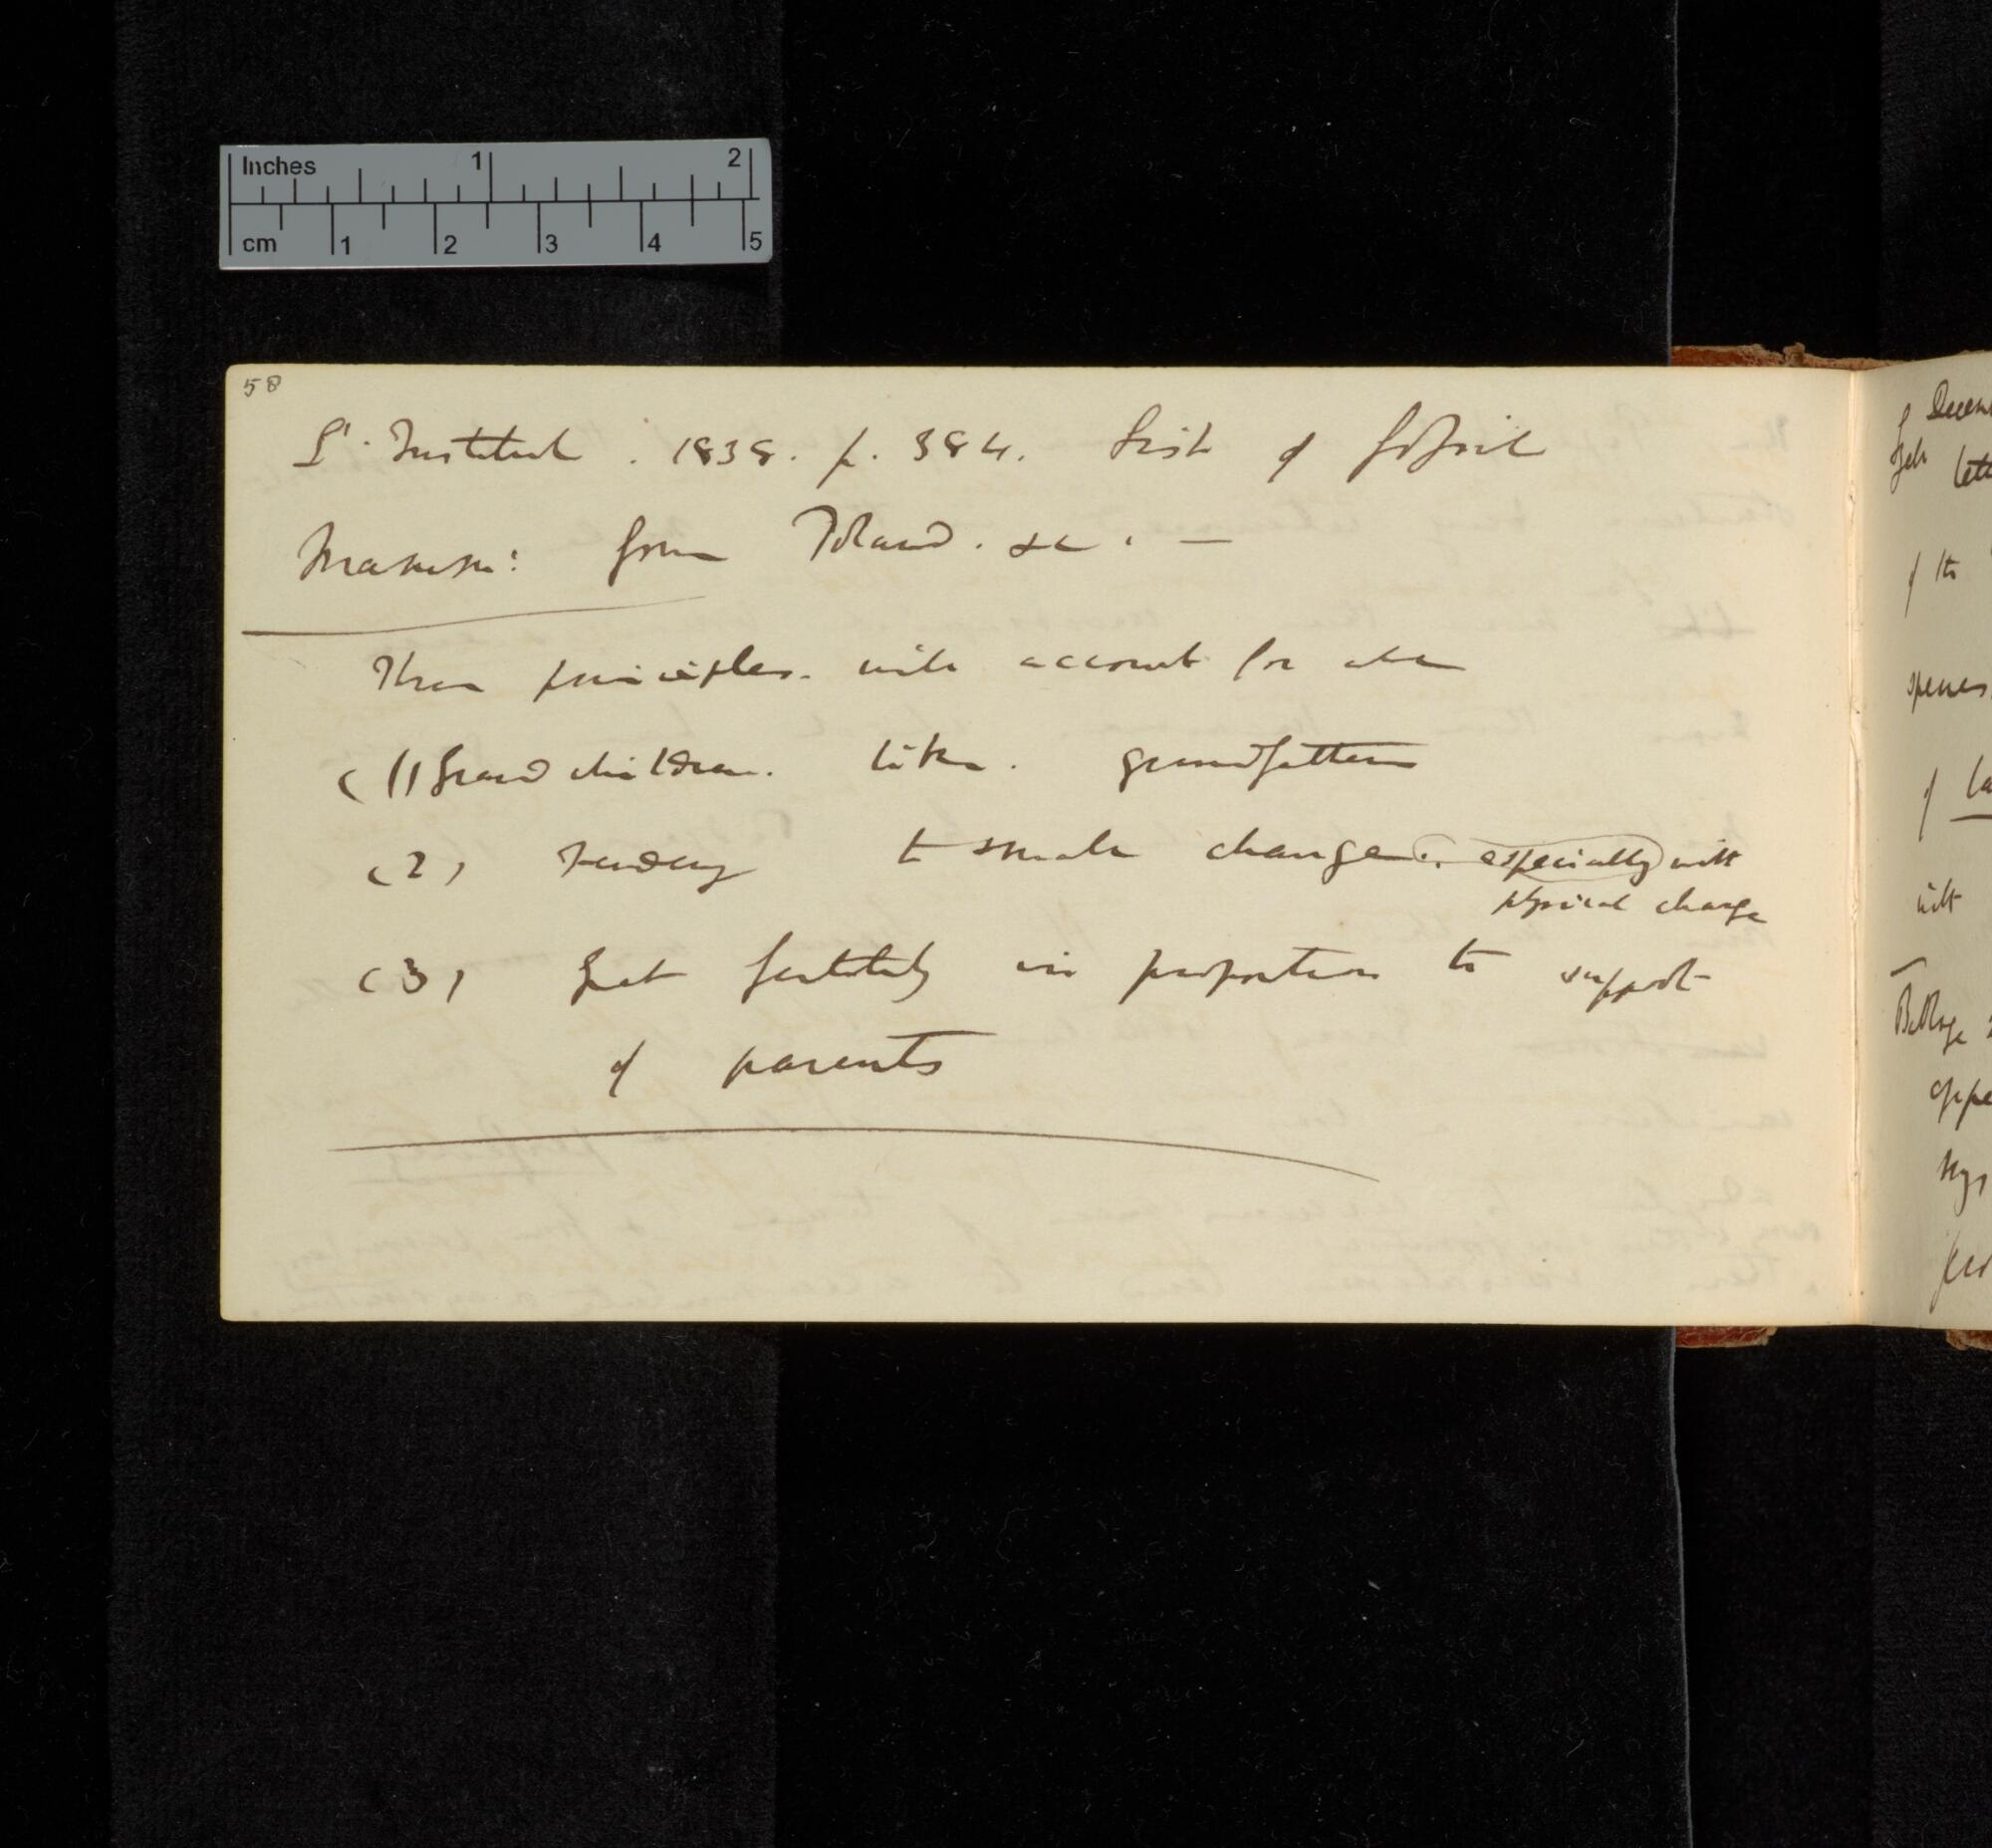 Inches 1 2
cm 1 2 3 4 5
58
L'. Institut. 1838. p. 384. List of fossil
Mammi: from Poland. &c. —
Three principles. will account for all
(1) Grandchildren. like. grandfathers
(2) Tendency to small change.. especially with
physical change
(3) Great fertility in proportion to support
of parents
of the
species
of
with